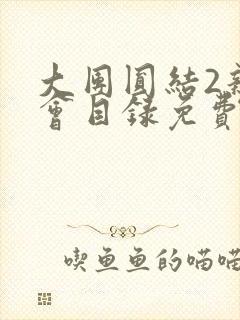 大團圓結2新
會目錄免費
喫魚魚的喵喵